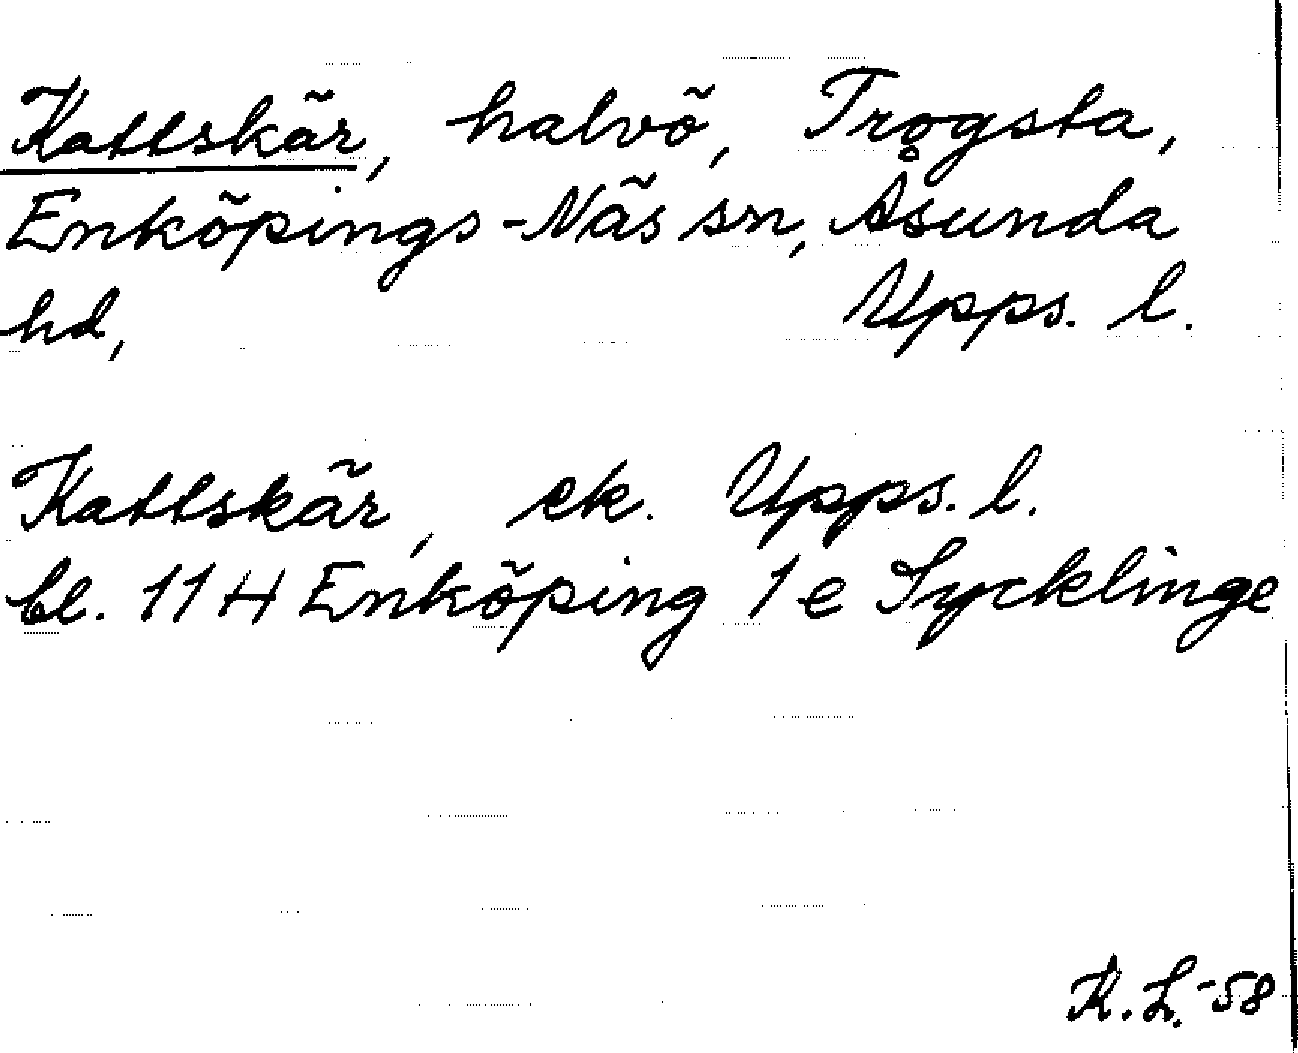 Kattskär, halvö, Trogsta,
Enköpings-Näs sn, Åsunda
hd, Upps. l.
Kattskär, ek. Upps. l.
bl. 11 H Enköping 1 e Sycklinge
K. L. -58